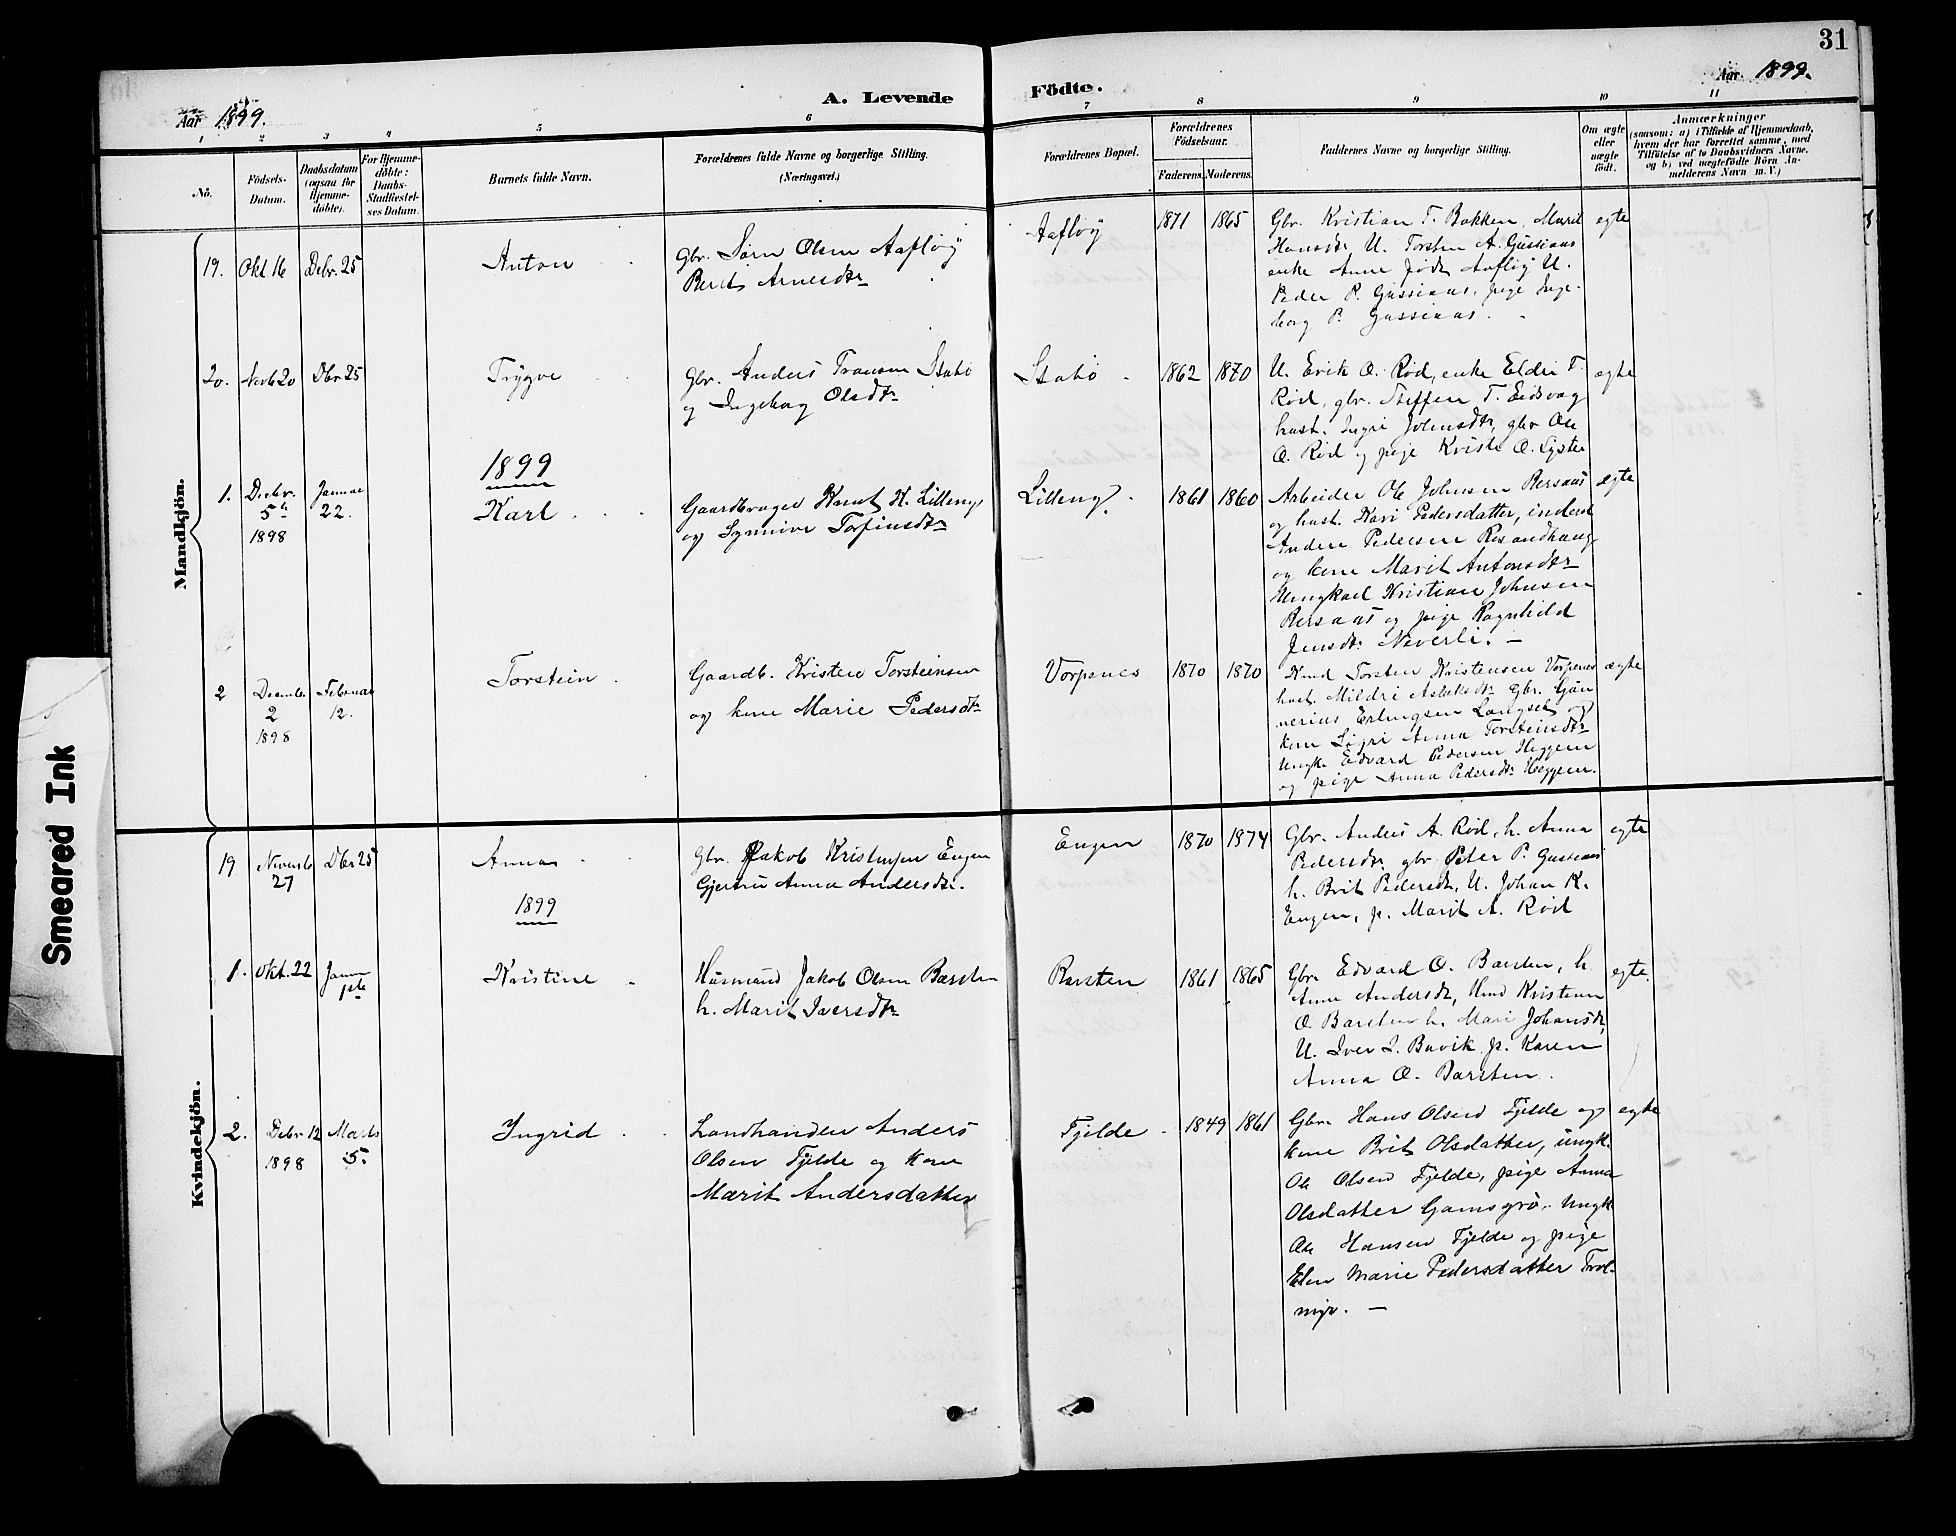 31
Aar 1899.
A. Levende
Födte.
Aar 1899.
1 2 3 4 5 6 7 8 9 10 11
Nö.
Födsels-
Datum.
Daabsdatum
(ogsaa for
Hjemme-
döbte).
For Hjemme-
döbte:
Daabs-
Stadfæstel-
ses Datum.
Barnets fulde Navn.
Forældrenes fulde Navne og borgerlige Stilling.
(Næringsvei.)
Forældrenes Bopæl.
Forældrenes
Födselsaar.
Faderens. Moderens.
Faddernes Navne og borgerlige Stilling.
Om ægte
eller
uægte
födt.
Anmærkninger
(saasom: a) i Tilfælde af Hjemmedaab,
hvem der har forrettet samme, med
Tilföielse af to Daabsvidners Navne,
og b) ved uægtefödte Börn An-
melderens Navn m. V.)
Mandkjön.
19. Okt 16 Debr. 25
Anton
Gbr. Sörn Olsen Aafløy
Berit Arnesdtr
Aafløy
1871 1865
Gbr. Kristian T. Bakken, Marit
Hansdtr U. Torsten A. Gussiaas
enke Anne Jødt Aafløy U.
Peder P. Gussiaas, pige Inge-
borg P. Gussiaas.
egte
20. Novb 20 Dbr 25
Trygve
Gbr. Anders Transen Stabø
og Ingeborg Olsdtr
Stabø
1862 1870
U. Erik O. Rød, enke Eldri T.
Rød, gbr. Steffen T. Eidsvag
hust. Ingri Johnsdtr, gbr Ole
O. Rød og pige Kristi O. Syster
ægte
1899
1. Decbr.
5te
1898
Januar
22.
Karl
Gaardbruger Knut K. Lilleng
og Synnive Torfinsdtr
Lilleng.
1861 1860
Arbeider Ole Johnsen Bersaas
og hust. Kari Pedersdatter, inderst
Anders Pedersen Rosandhaug
og kone Marit Antonsdtr
Ungkarl Kristian Johnsen
Bersaas og pige Ragnhild
Jensdtr Neverli. —
ægte
2 Decembr
2
1898
Februar
12.
Torstein
Gaardb. Kristen Torsteinsen
og kone Marie Pedersdtr
Vorpenes
1870 1870
Kmd Torsten Kristensen Vorpenes
hust. Mildri Aslaksdtr gbr. Gun-
nerius Erlingsen Langset og
kone Sigri Anna Torsteinsdtr
Ungk. Edvard Pedersen Heggem
og pige Anna Pedersdtr Heggem.
ægte
Kvindekjön.
19 Novemb
27
Dbr 25
Anna
Gbr. Jakob Kristensen Engen
Gjertru Anna Andersdtr.
Engen
1870 1874
Gbr. Anders A. Rød, h. Anna
Pedersdtr, gbr Peter P. Gussiaas
h. Brit Pedersdtr, U. Johan K.
Engen, p. Marit A. Rød
egte
1899
1. Okt. 22 Januar
1ste
Kristine
Husmand Jakob Olsen Barsten
h. Marit Iversdtr
Barsten
1861 1865
Gbr. Edvard O. Barsten, h
Anne Andersdtr, Kmd Kristian
O. Barsten h. Mari Johansdtr,
U. Iver I. Buvik p. Karen
Anna O. Barsten.
egte.
2. Debr 12
1898
Marts
5.
Ingrid
Landhandler Anders
Olsen Fjelde og Kone
Marit Andersdatter
Fjelde
1849 1861
Gbr. Hans Olsen Fjelde og
kone Brit Olsdatter, ungk.
Ole Olsen Fjelde, pige Anna
Olsdatter Gamsgrø. Ungk
Ole Hansen Fjelde og pige
Elen Marie Pedersdatter Trol-
myr. —
egte
Smeared Ink